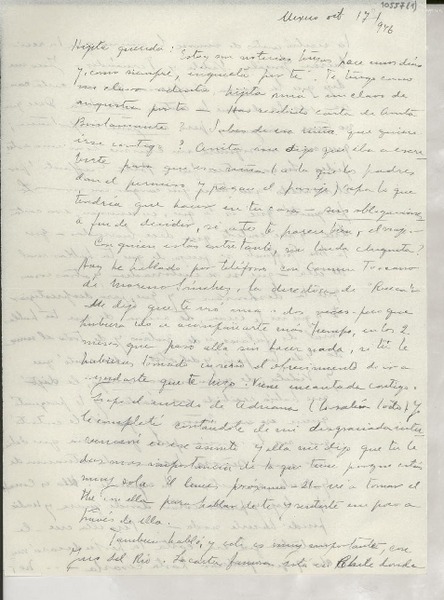 1055761
Mexico oct 17/
946
Hijita querida: Estoy sin noticias tuyas hace unos días
y, como siempre, inquieta por ti. Te tengo como
un clavo adentro, hijita mía, un clavo de
angustia por ti — Has recibido carta de Anita
Bustamante? Sabes de esa niña que quiere
irse contigo? Anita me dijo que iba a escri
birte para que esa niña (a la que los padres
dan el permiso y pagan el pasaje) sepa lo que
tendría que hacer en tu casa — sus obligaciones
a fin de decidir, si a ti te parece bien, el viaje.
Con quien estás entretanto, mi linda chiquita?
Hoy he hablado por teléfono con Carmen Toscano
de Moreno Sánchez, la directora de "Rueca".
Me dijo que te vió una o dos veces pero que
hubiera ido a acompañarte más tiempo, en los 2
meses que pasó allá sin hacer nada, si tú le
hubieras tomado en serio el ofrecimiento de ir a
ayudarte que te hizo. Viene encantada contigo.
Supe el enredo de Adriana (lo sabía todo) y
lo completé contándole el mío
en ese asunto y ella me dijo que tú le
das más importancia de la que tiene porque estás
muy sola. El lunes próximo — 21 — iré a tomar el
thé con ella para hablar de ti y sentirte un poco a
través de ella.
También hablé, y esto es muy importante, con
del Río. La carta famosa está en donde